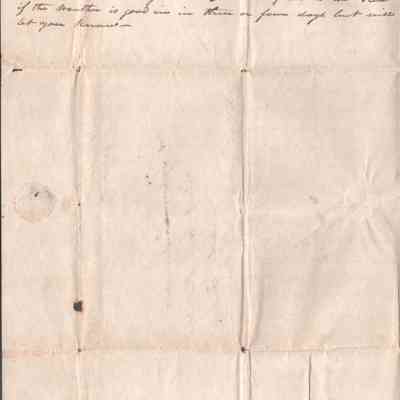 if the weather is good in in three or four days but will
let you know